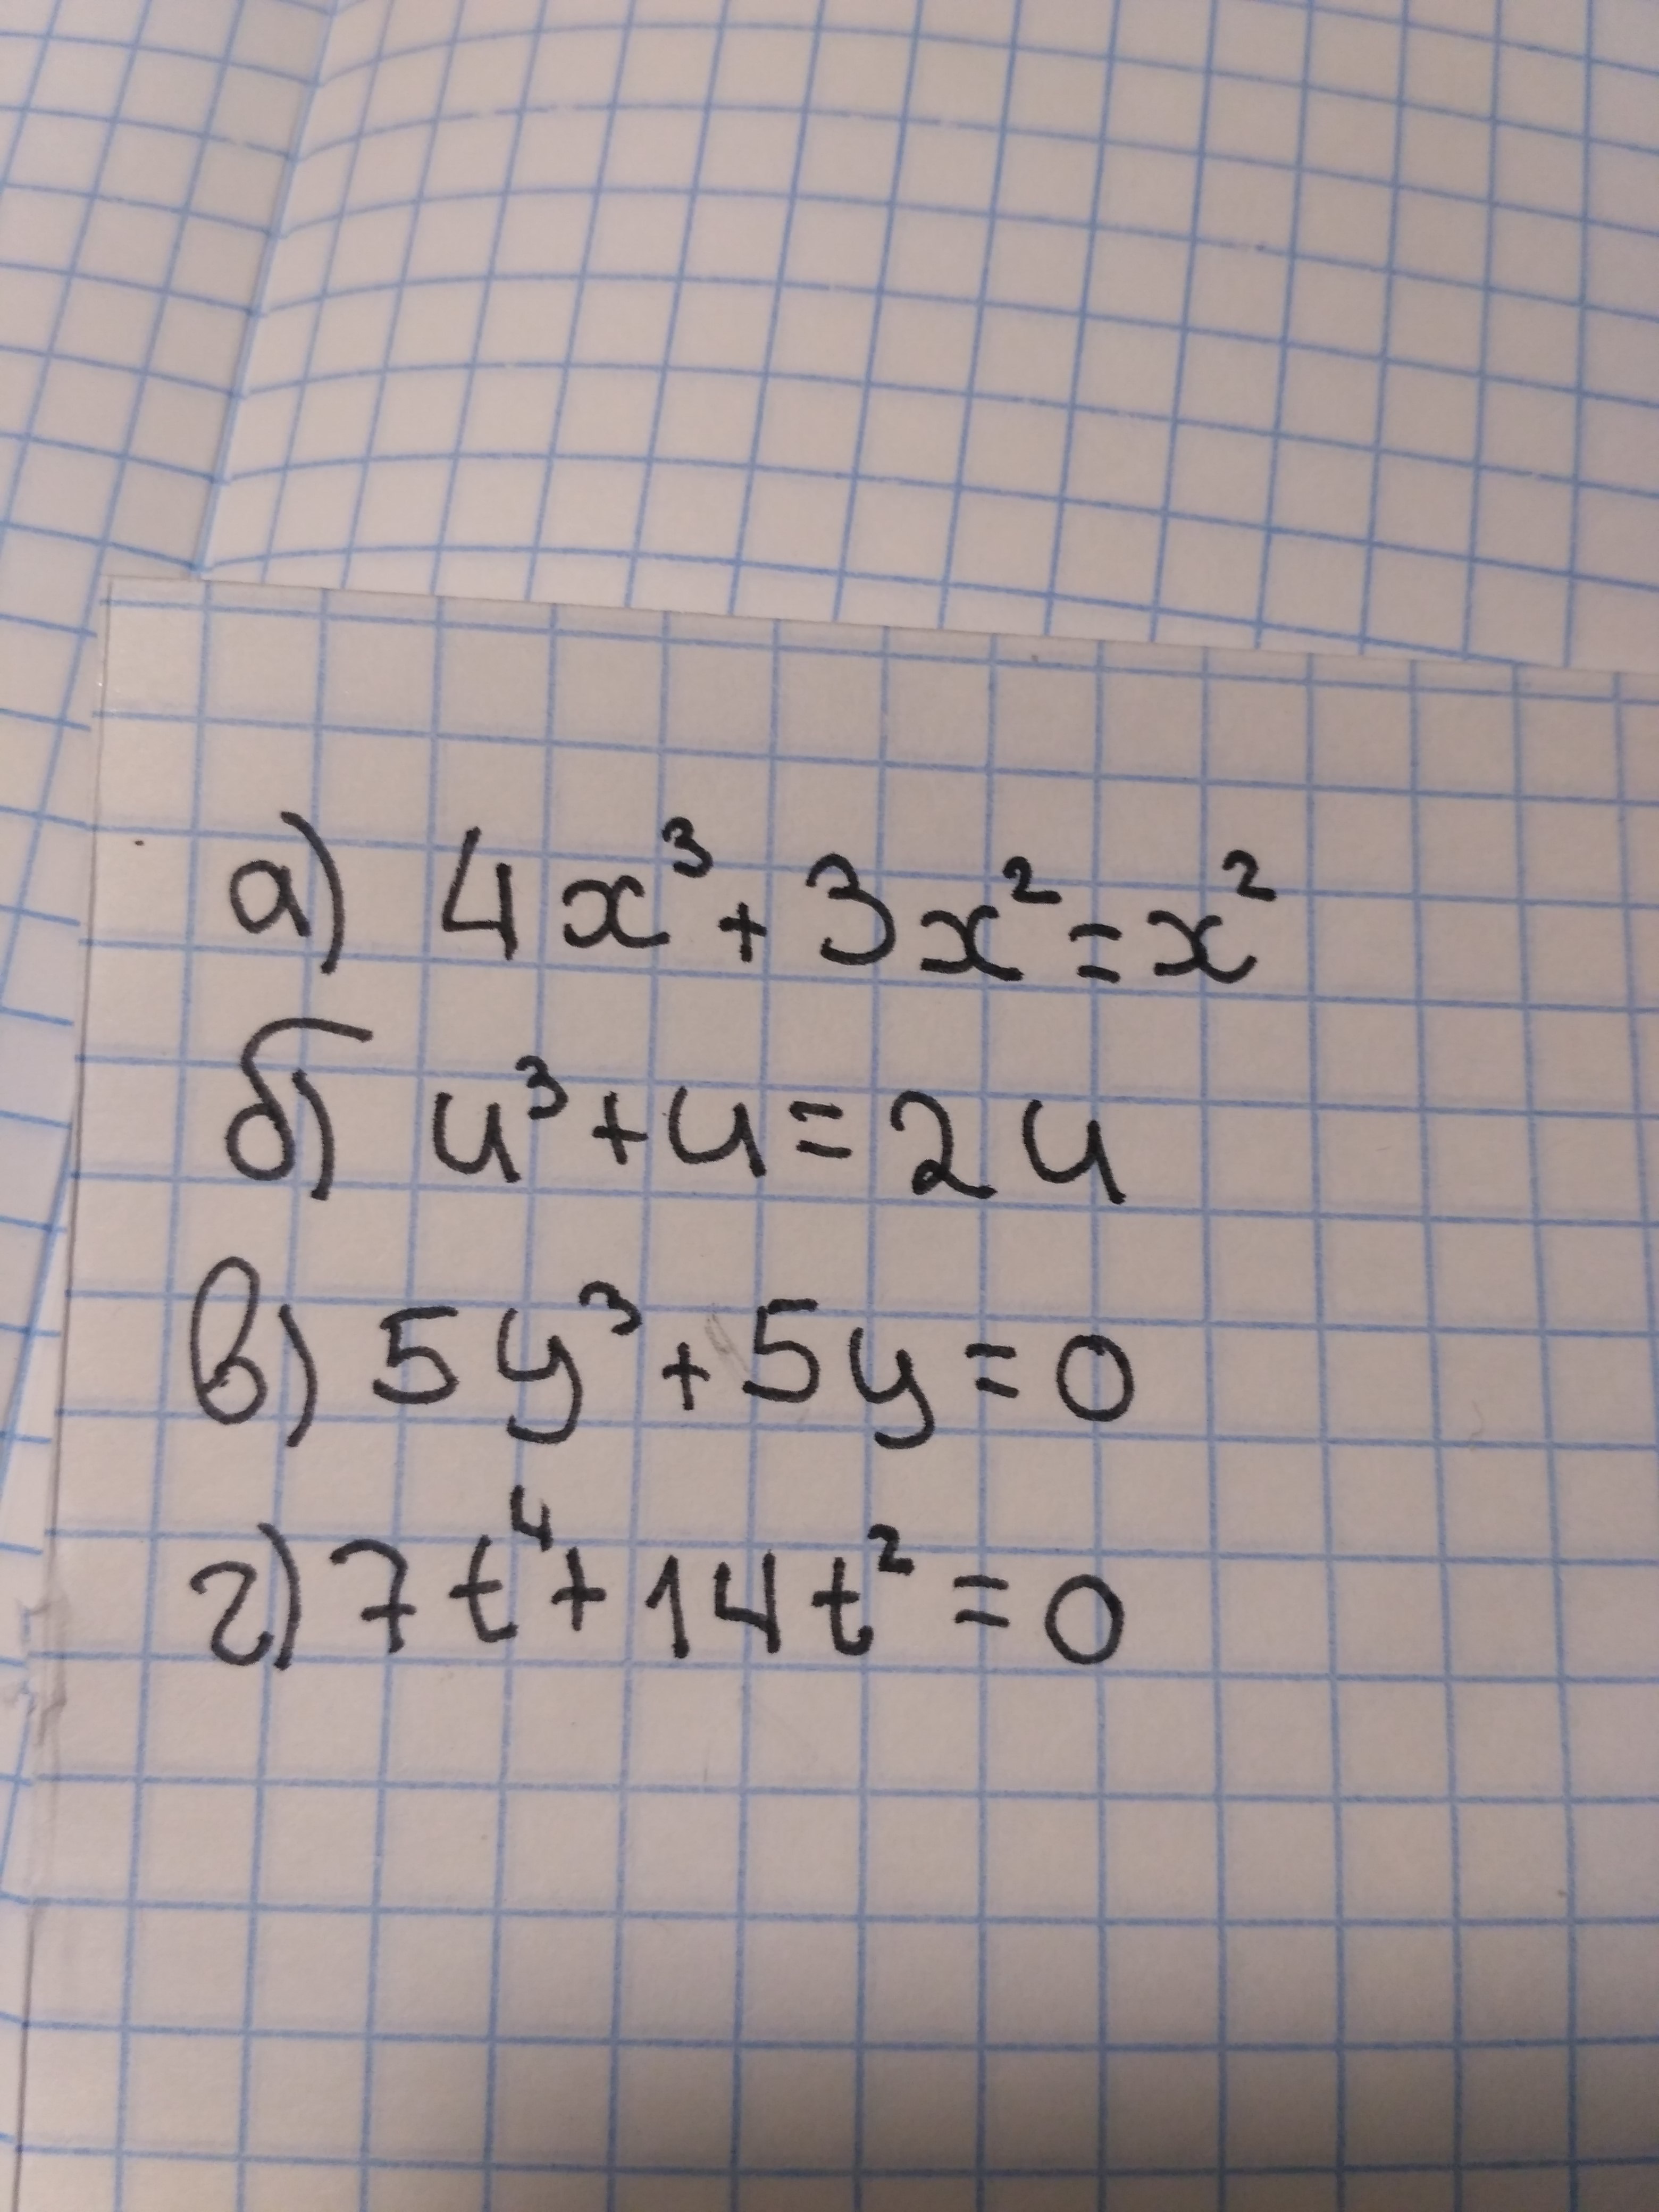 а) 4x³ + 3x² = x²
б) u³ + u = 2u
в) 5y³ + 5y = 0
г) 7t⁴ + 14t² = 0